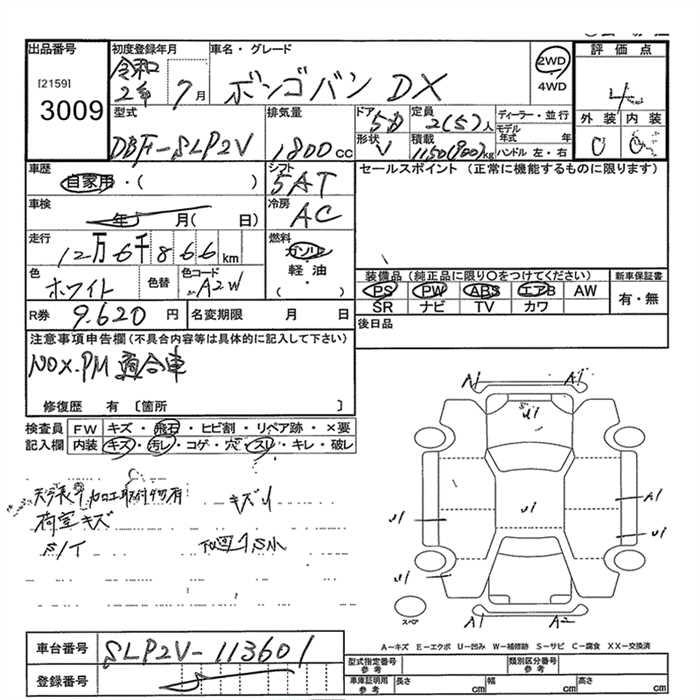 出品番号
[2159]
3009
初度登録年月
令和
2年 7月
車名・グレード
ボンゴバン DX
2WD
4WD
評価点
4
型式
DBF-SLP2V
排気量
1800cc
ドア
5D
形状
V
定員
2(5)人
積載
1150(900)kg
ディーラー・並行
モデル年式 年
ハンドル 左・右
外装 内装
車歴
自家用・( )
シフト
5AT
セールスポイント(正常に機能するものに限ります)
車検
年 月( 日)
冷房
AC
走行
12万6千866km
燃料
ガソリン
軽油
( )
色
ホワイト
色替
色コード
A2W
装備品(純正品に限り〇をつけてください)
PS PW ABS エアB AW
SR ナビ TV カワ
新車保証書
有・無
R券 9.620円
名変期限 月 日
後日品
注意事項申告欄(不具合内容等は具体的に記入して下さい)
NOX.PM 適合車
修復歴 有〔箇所 〕
検査員
記入欄
FW キズ・飛石・ヒビ割・リペア跡・×要
内装 キズ・汚レ・コゲ・穴・スリ・キレ・破レ
キズリ
荷室キズ
A1 A1
U1
A1
U1
U1
U1
U1
A1 A1
スペア
A-キズ E-エクボ U-凹み W-補修跡 S-サビ C-腐食 XX-交換済
車台番号
SLP2V-113601
登録番号
型式指定番号
参考
類別区分番号
参考
車庫証明用
参考
長さ cm 幅 cm 高さ cm